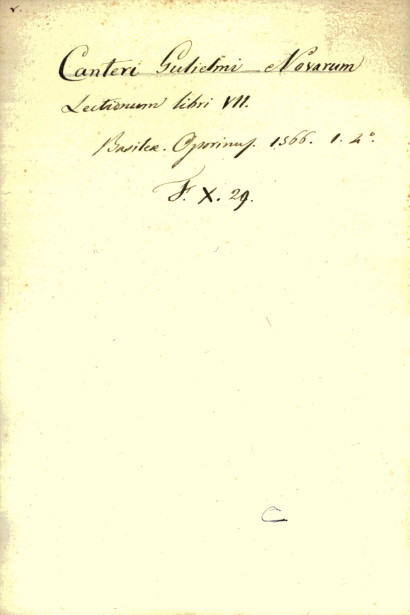 Canteri Gulielmi Novarum
Lectionum libri VII.
Basileæ. Oporinus. 1566. 1. 4º.
F. X. 29.
C